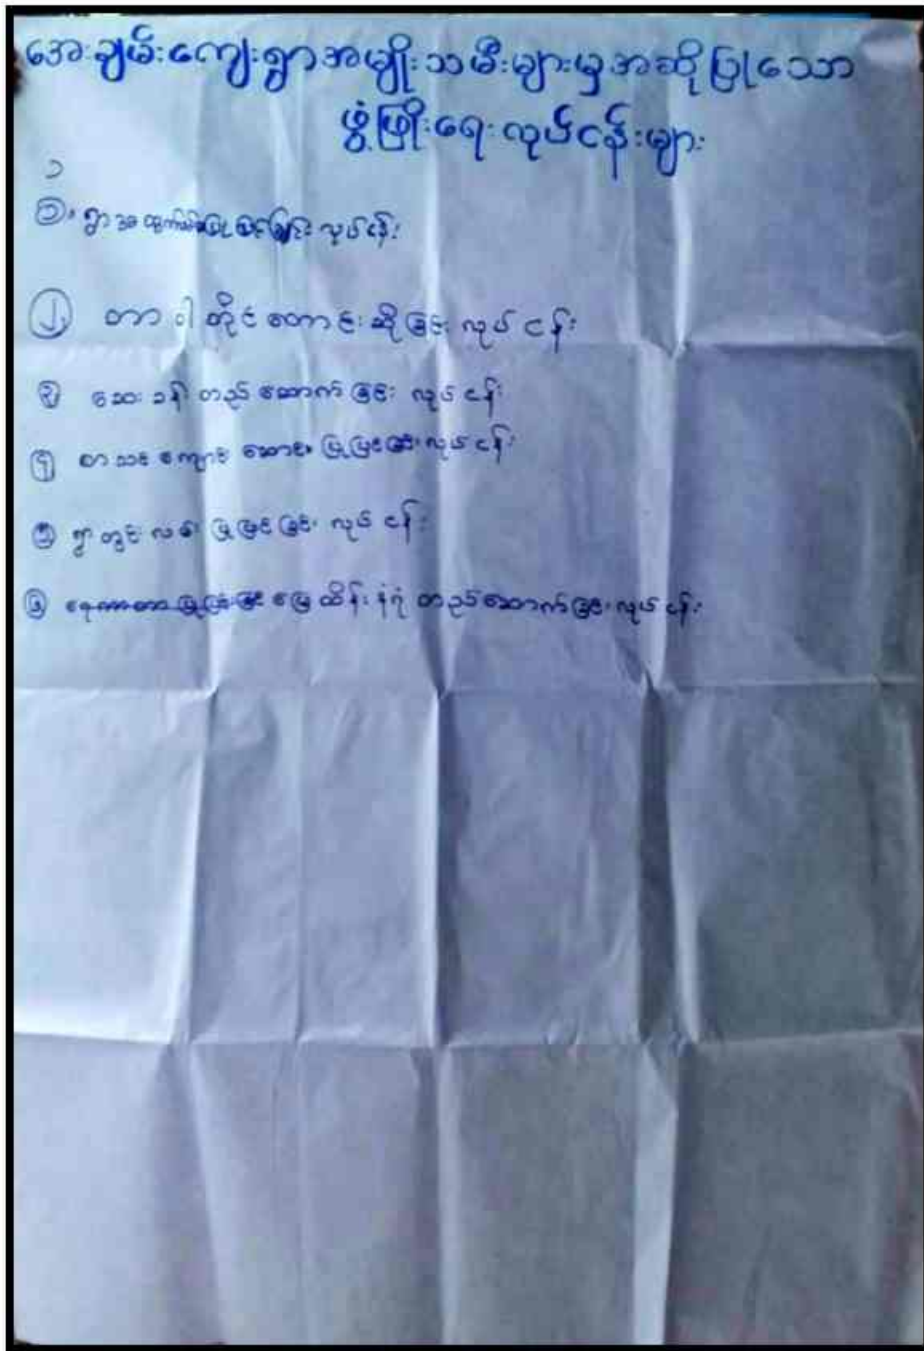 အေးချမ်းကျေးရွာအမျိုးသမီးများမှအဆိုပြုသော
ဖွံ့ဖြိုးရေးလုပ်ငန်းများ
၁
၁။ ရွာအထွက်လမ်းပြုပြင်ခြင်းလုပ်ငန်း
၂ တာဝါတိုင်တောင်းဆိုခြင်းလုပ်ငန်း
၃ ဆေးခန်းတည်ဆောက်ခြင်းလုပ်ငန်း
၄ စာသင်ကျောင်းဆောင်ပြုပြင်ခြင်းလုပ်ငန်း
၅ ရွာတွင်းလမ်းပြုပြင်ခြင်းလုပ်ငန်း
၆ မြေထိန်းနံရံတည်ဆောက်ခြင်းလုပ်ငန်း